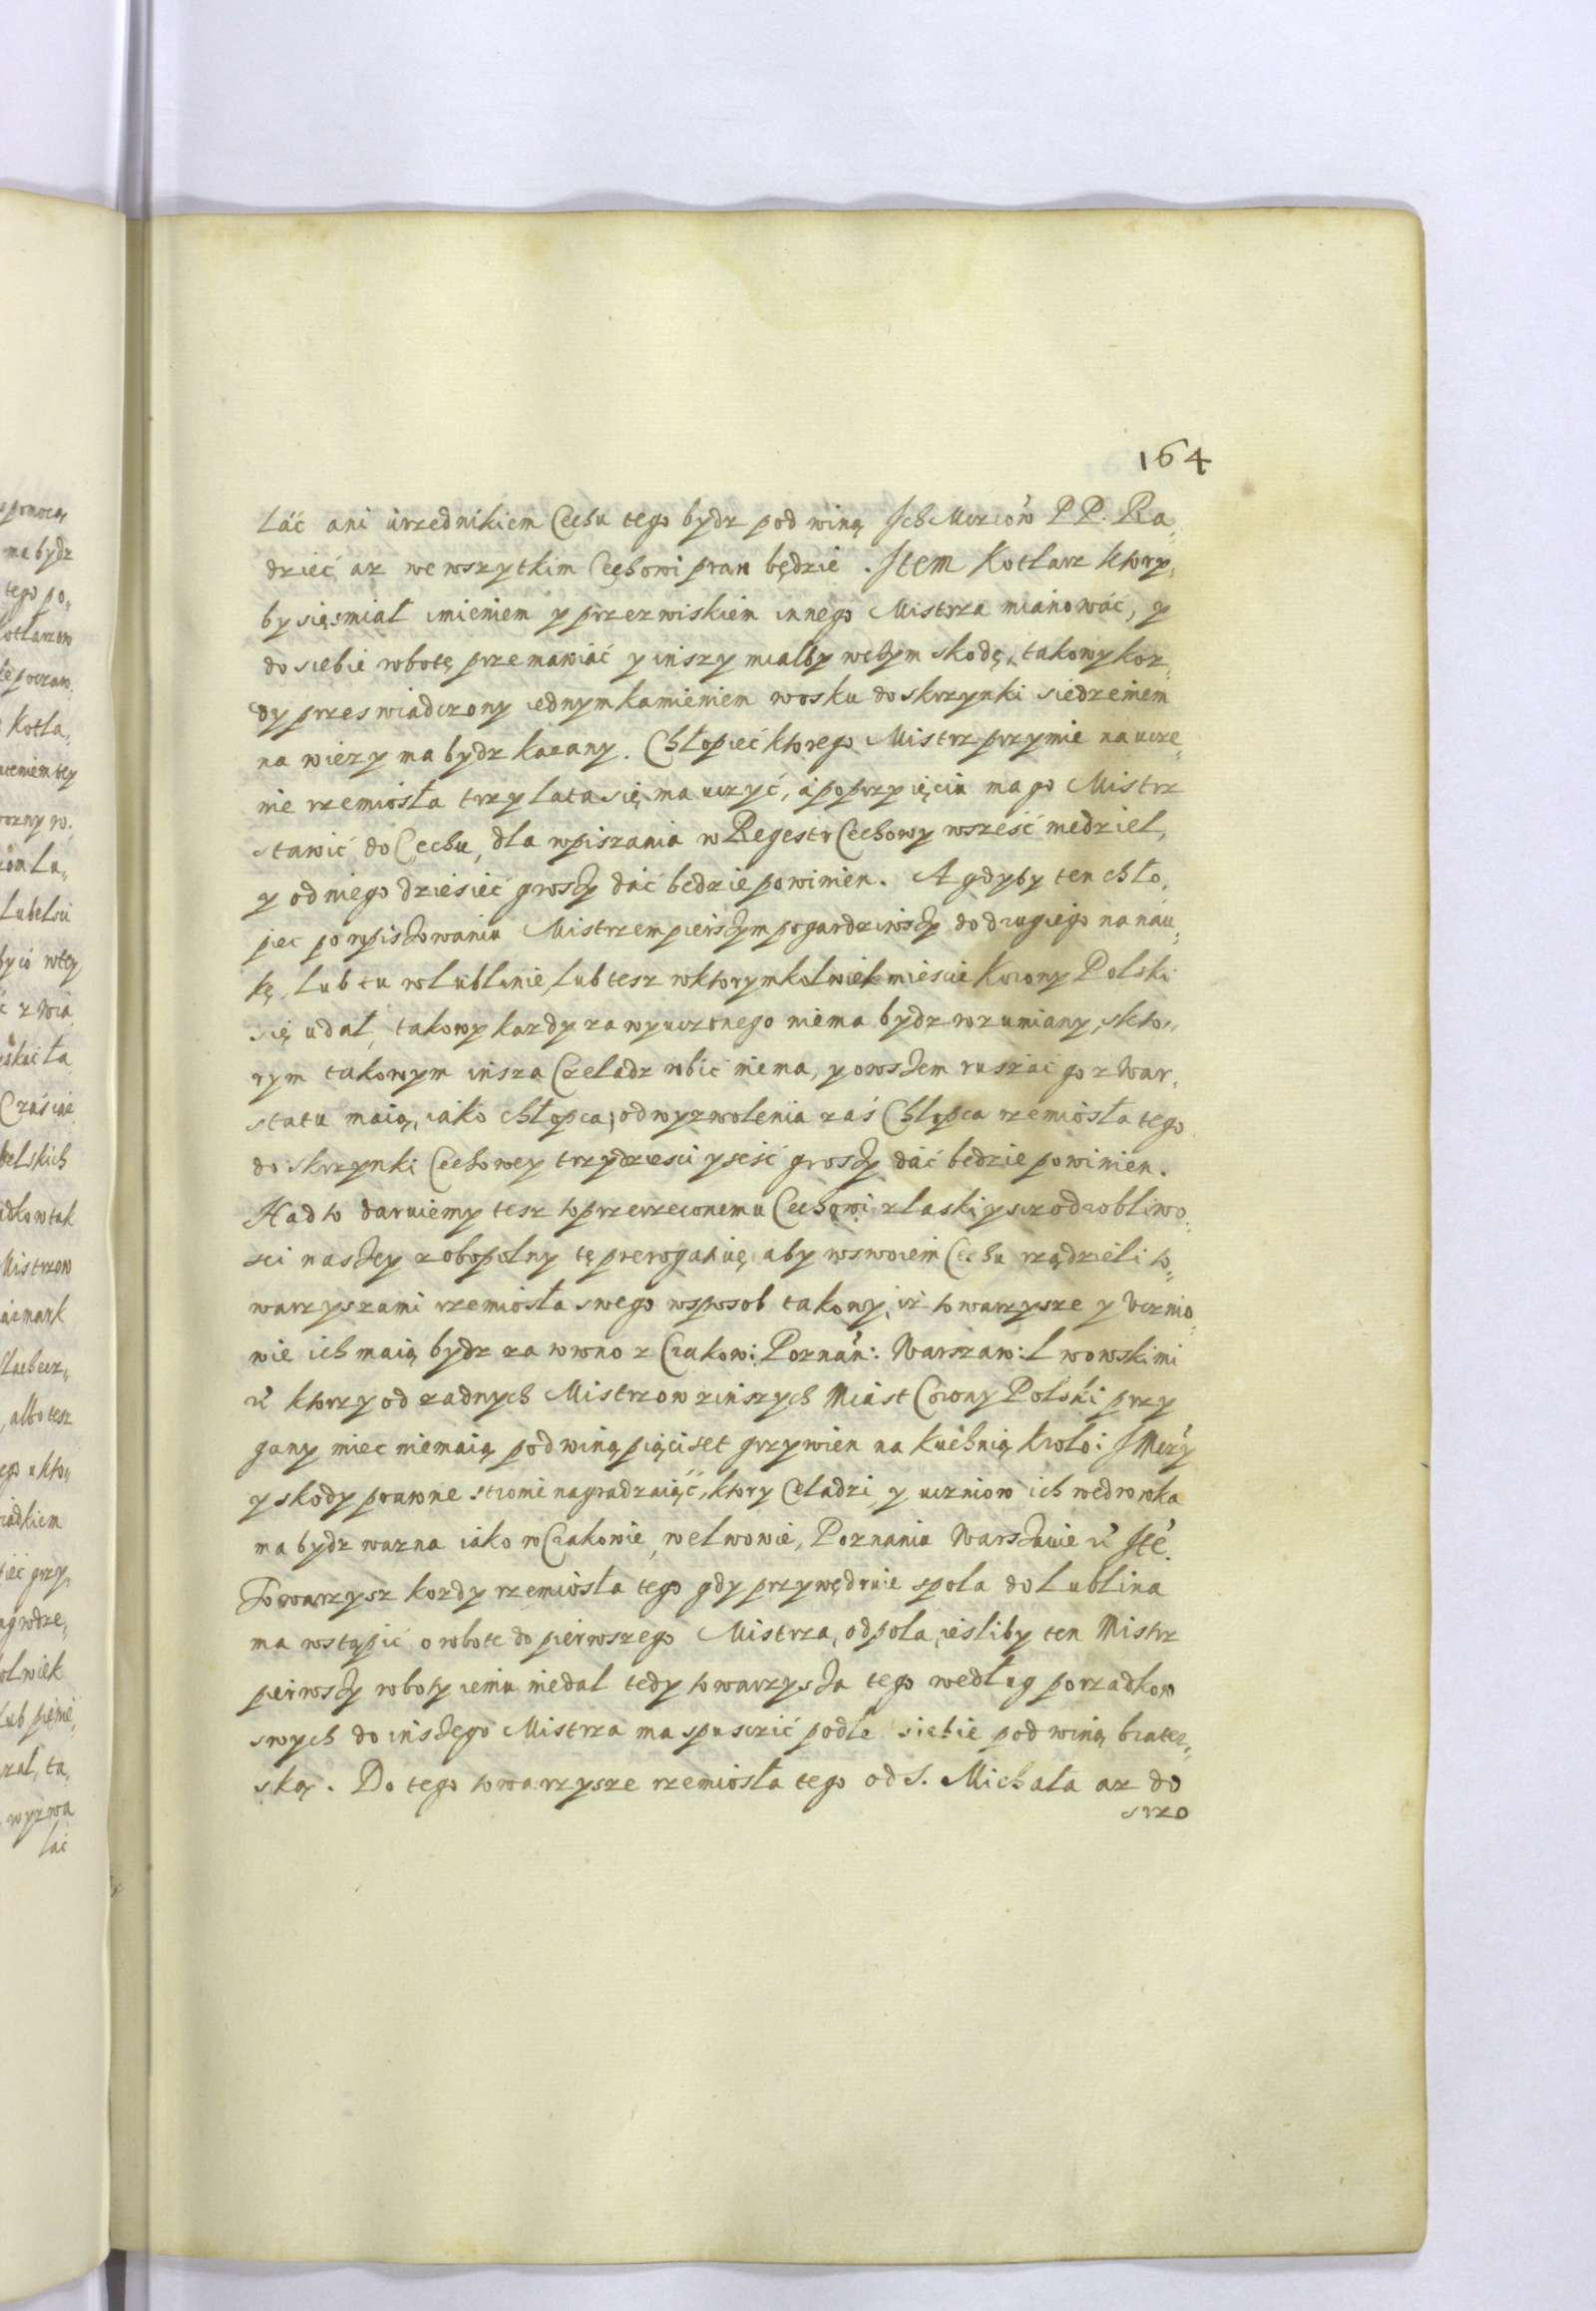 164
lać ani urzednikiem Cechu tego bydz pod winą Jch Mcziow P P. Ra„
dzieć az we wszytkim Cechowi praw będzie. Jtem Kotlarz ktory„
by się smiał imieniem y przezwiskiem innego Mistrza mianowác, y
do siebie robotę przemawiać y inszy miałby wtym skodę, takowy koz„
dy przeswiadczony iednym kamieniem wosku do skrzynki siedzeniem
na wiezy ma bydz karany. Chłopieć ktorego Mistrz przymie na ucze„
nie rzemiosła trzy lata się ma uczyć, á po przyięciu ma go Mistrz
stawić do Cechu, dla wpiszania w Regestr Cechowy wsześć niedziel,
y od niego dziesieć groszy dáć bedzie powinien. A gdyby ten chło„
piec po wpiszowaniu Mistrzem pierszym pogardziwszy do drugiego na nau„
kę, lub tu w Lublinie, lub tesz wktorymkolwiek miescie Korony Polski
się udał, takowy kazdy za wyuczonego niema bydz rozumiany, skto„
rym takowym insza Czeladz robić niema, y owszem ruszać go z War„
statu maią, iáko chłopca; od wyzwolenia zaś Chłopca rzemiosła tego
do skrzynki Cechowey trzydziesci y seść groszy dáć bedzie powinien.
Nad to daruiemy tesz toprzerzeconemu Cechowi z laski y sczodrobliwo„
sci naszey z obopolny tę prerogatiuę aby wswoiem Cechu rządzieli to„
warzyszami rzemiosła swego wsposob takowy, isz towarzysze y Ucznio„
wie ich maią bydz za rowno z Crakow: Poznań: Warszaw: Lwowskimi
etc ktorzy od zadnych Mistrzow zinszych Miast Corony Polski przy
gany miec niemaią pod winą pięciset grzywien na kuchnią Krolo: J Mczy
y skody prawne stronie nagradzaiąć, ktory Celadzi, y uczniow ich wędrowka
ma bydz wazna iako w Crakowie, we Lwowie, Poznaniu Warszawie etc Ité.
Towarzysz kozdy rzemiosła tego gdy przywędruie spola do Lublina
ma wstąpić o robote do pierwszego Mistrza, odpola, iesliby ten Mistrz
pierwszy roboty iemu niedal tedy towarzysza tego według porzadkow
swych do inszego Mistrza ma spuscić podle siebie pod winą brater„
ską. Do tego towarzysze rzemiosła tego od S. Michała az do
srzo